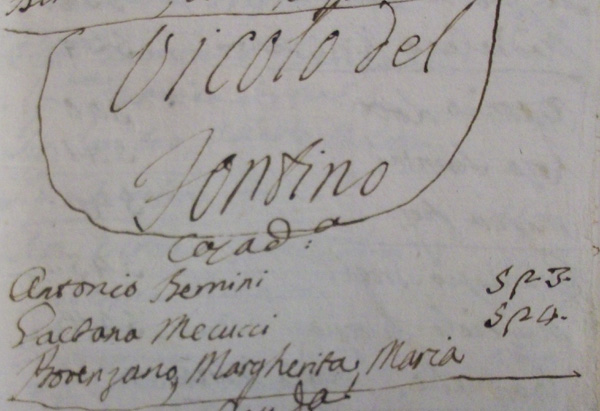 Vicolo del
Fontino
Casa d:a
Antonio Bernini
Gaetana Mecucci
Provenzano, Margherita, Maria